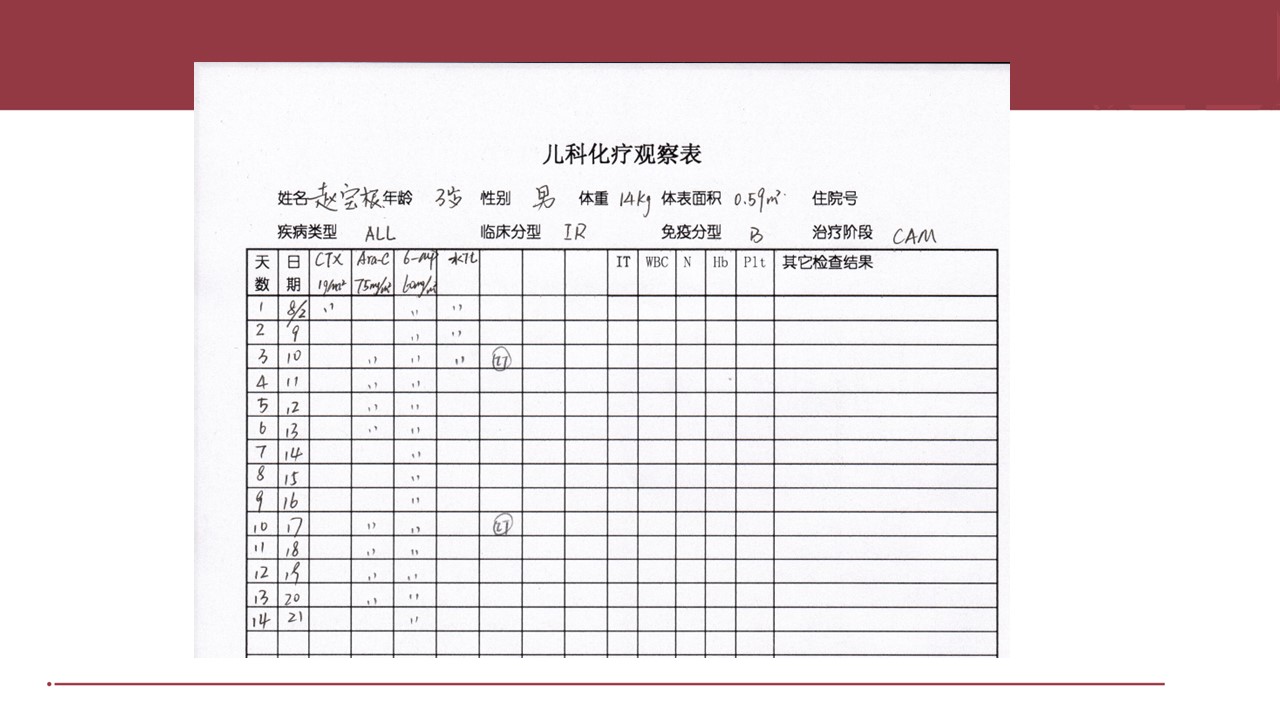 儿科化疗观察表
姓名 赵宝根 年龄 3岁 性别 男 体重 14kg 体表面积 0.59m² 住院号
疾病类型 ALL 临床分型 IR 免疫分型 B 治疗阶段 CAM
天数 日期 CTX 1g/m² Ara-C 75mg/m² 6-mp 60mg/m² 水化 IT WBC N Hb Plt 其它检查结果
1 8/2 〃 〃 〃
2 9 〃 〃
3 10 〃 〃 〃
4 11 〃 〃
5 12 〃 〃
6 13 〃 〃
7 14 〃
8 15 〃
9 16 〃
10 17 〃 〃
11 18 〃 〃
12 19 〃 〃
13 20 〃 〃
14 21 〃